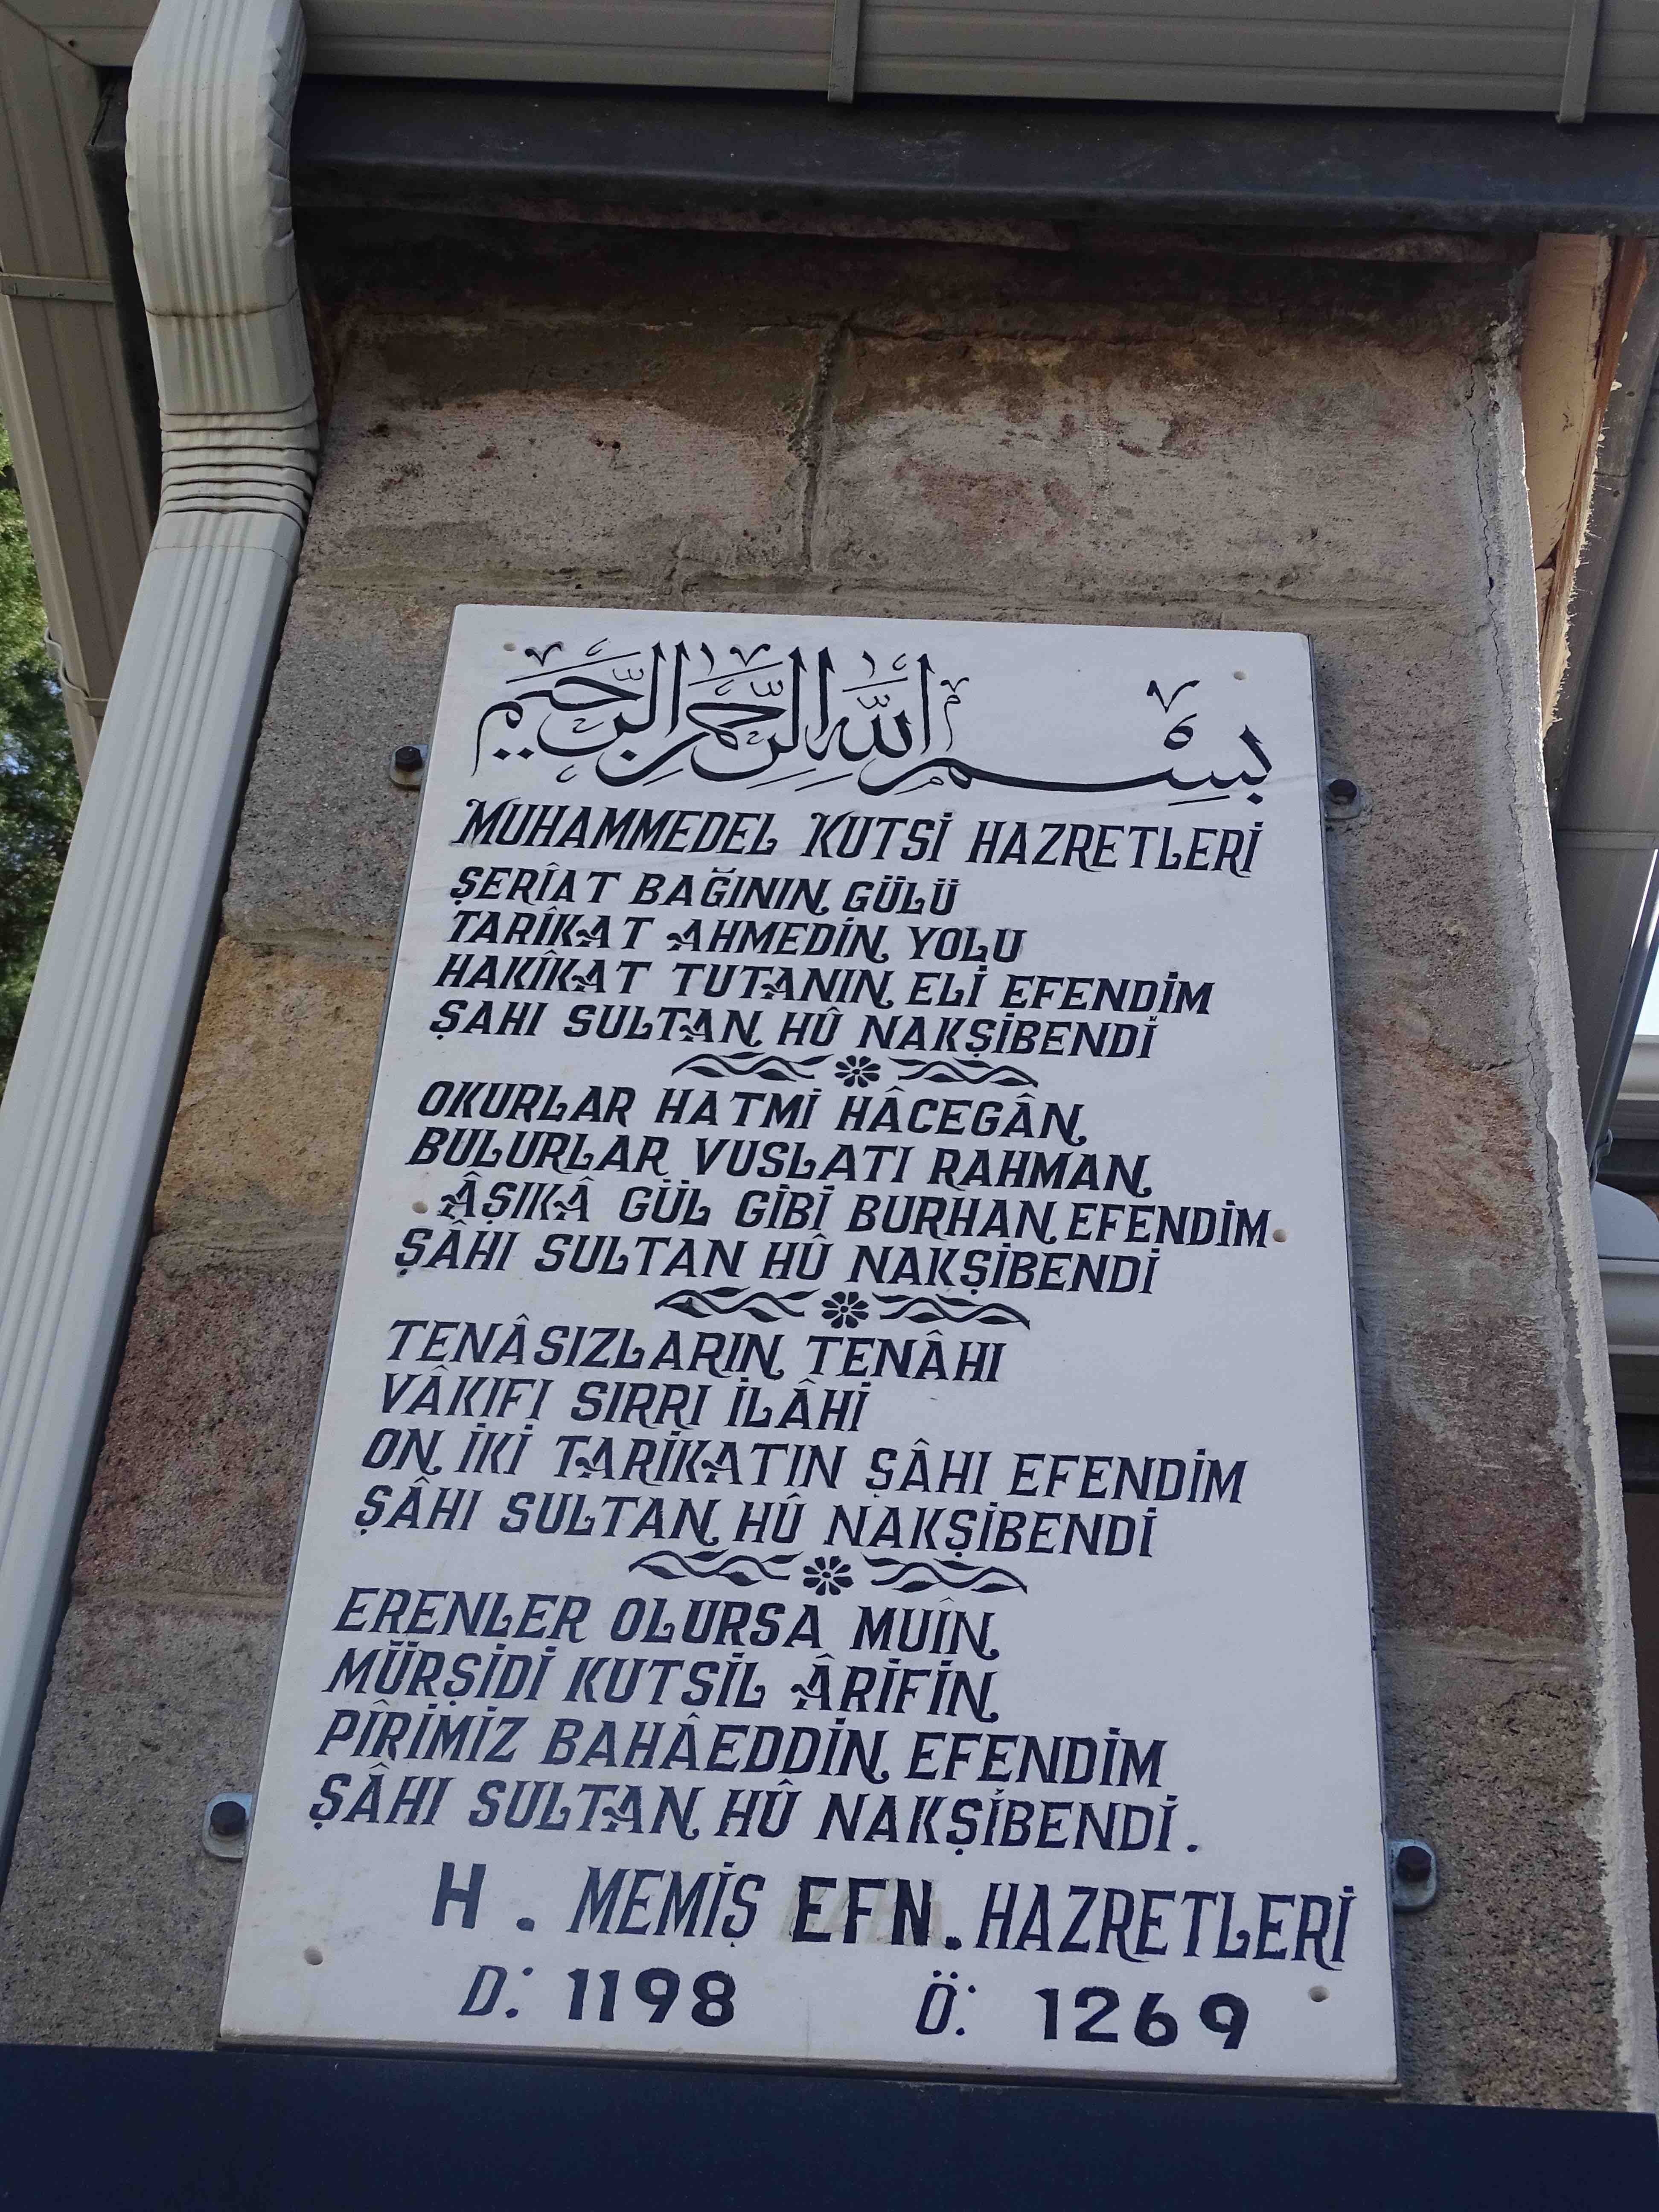 بسم الله الرحمن الرحيم
MUHAMMEDEL KUTSİ HAZRETLERİ
ŞERÎAT BAĞININ GÜLÜ
TARÎKAT AHMEDİN YOLU
HAKÎKAT TUTANIN ELİ EFENDİM
ŞAHI SULTAN HÛ NAKŞİBENDİ
OKURLAR HATMİ HÂCEGÂN
BULURLAR VUSLATI RAHMAN
ÂŞIKÂ GÜL GİBİ BURHAN EFENDİM
ŞÂHI SULTAN HÛ NAKŞİBENDİ
TENÂSIZLARIN TENÂHI
VÂKIFI SIRRI İLÂHİ
ON İKİ TARİKATIN ŞÂHI EFENDİM
ŞÂHI SULTAN HÛ NAKŞİBENDİ
ERENLER OLURSA MUÎN
MÜRŞİDİ KUTSİL ÂRİFİN
PÎRİMİZ BAHÂEDDİN EFENDİM
ŞÂHI SULTAN HÛ NAKŞİBENDİ.
H. MEMİŞ EFN. HAZRETLERİ
D: 1198 Ö: 1269